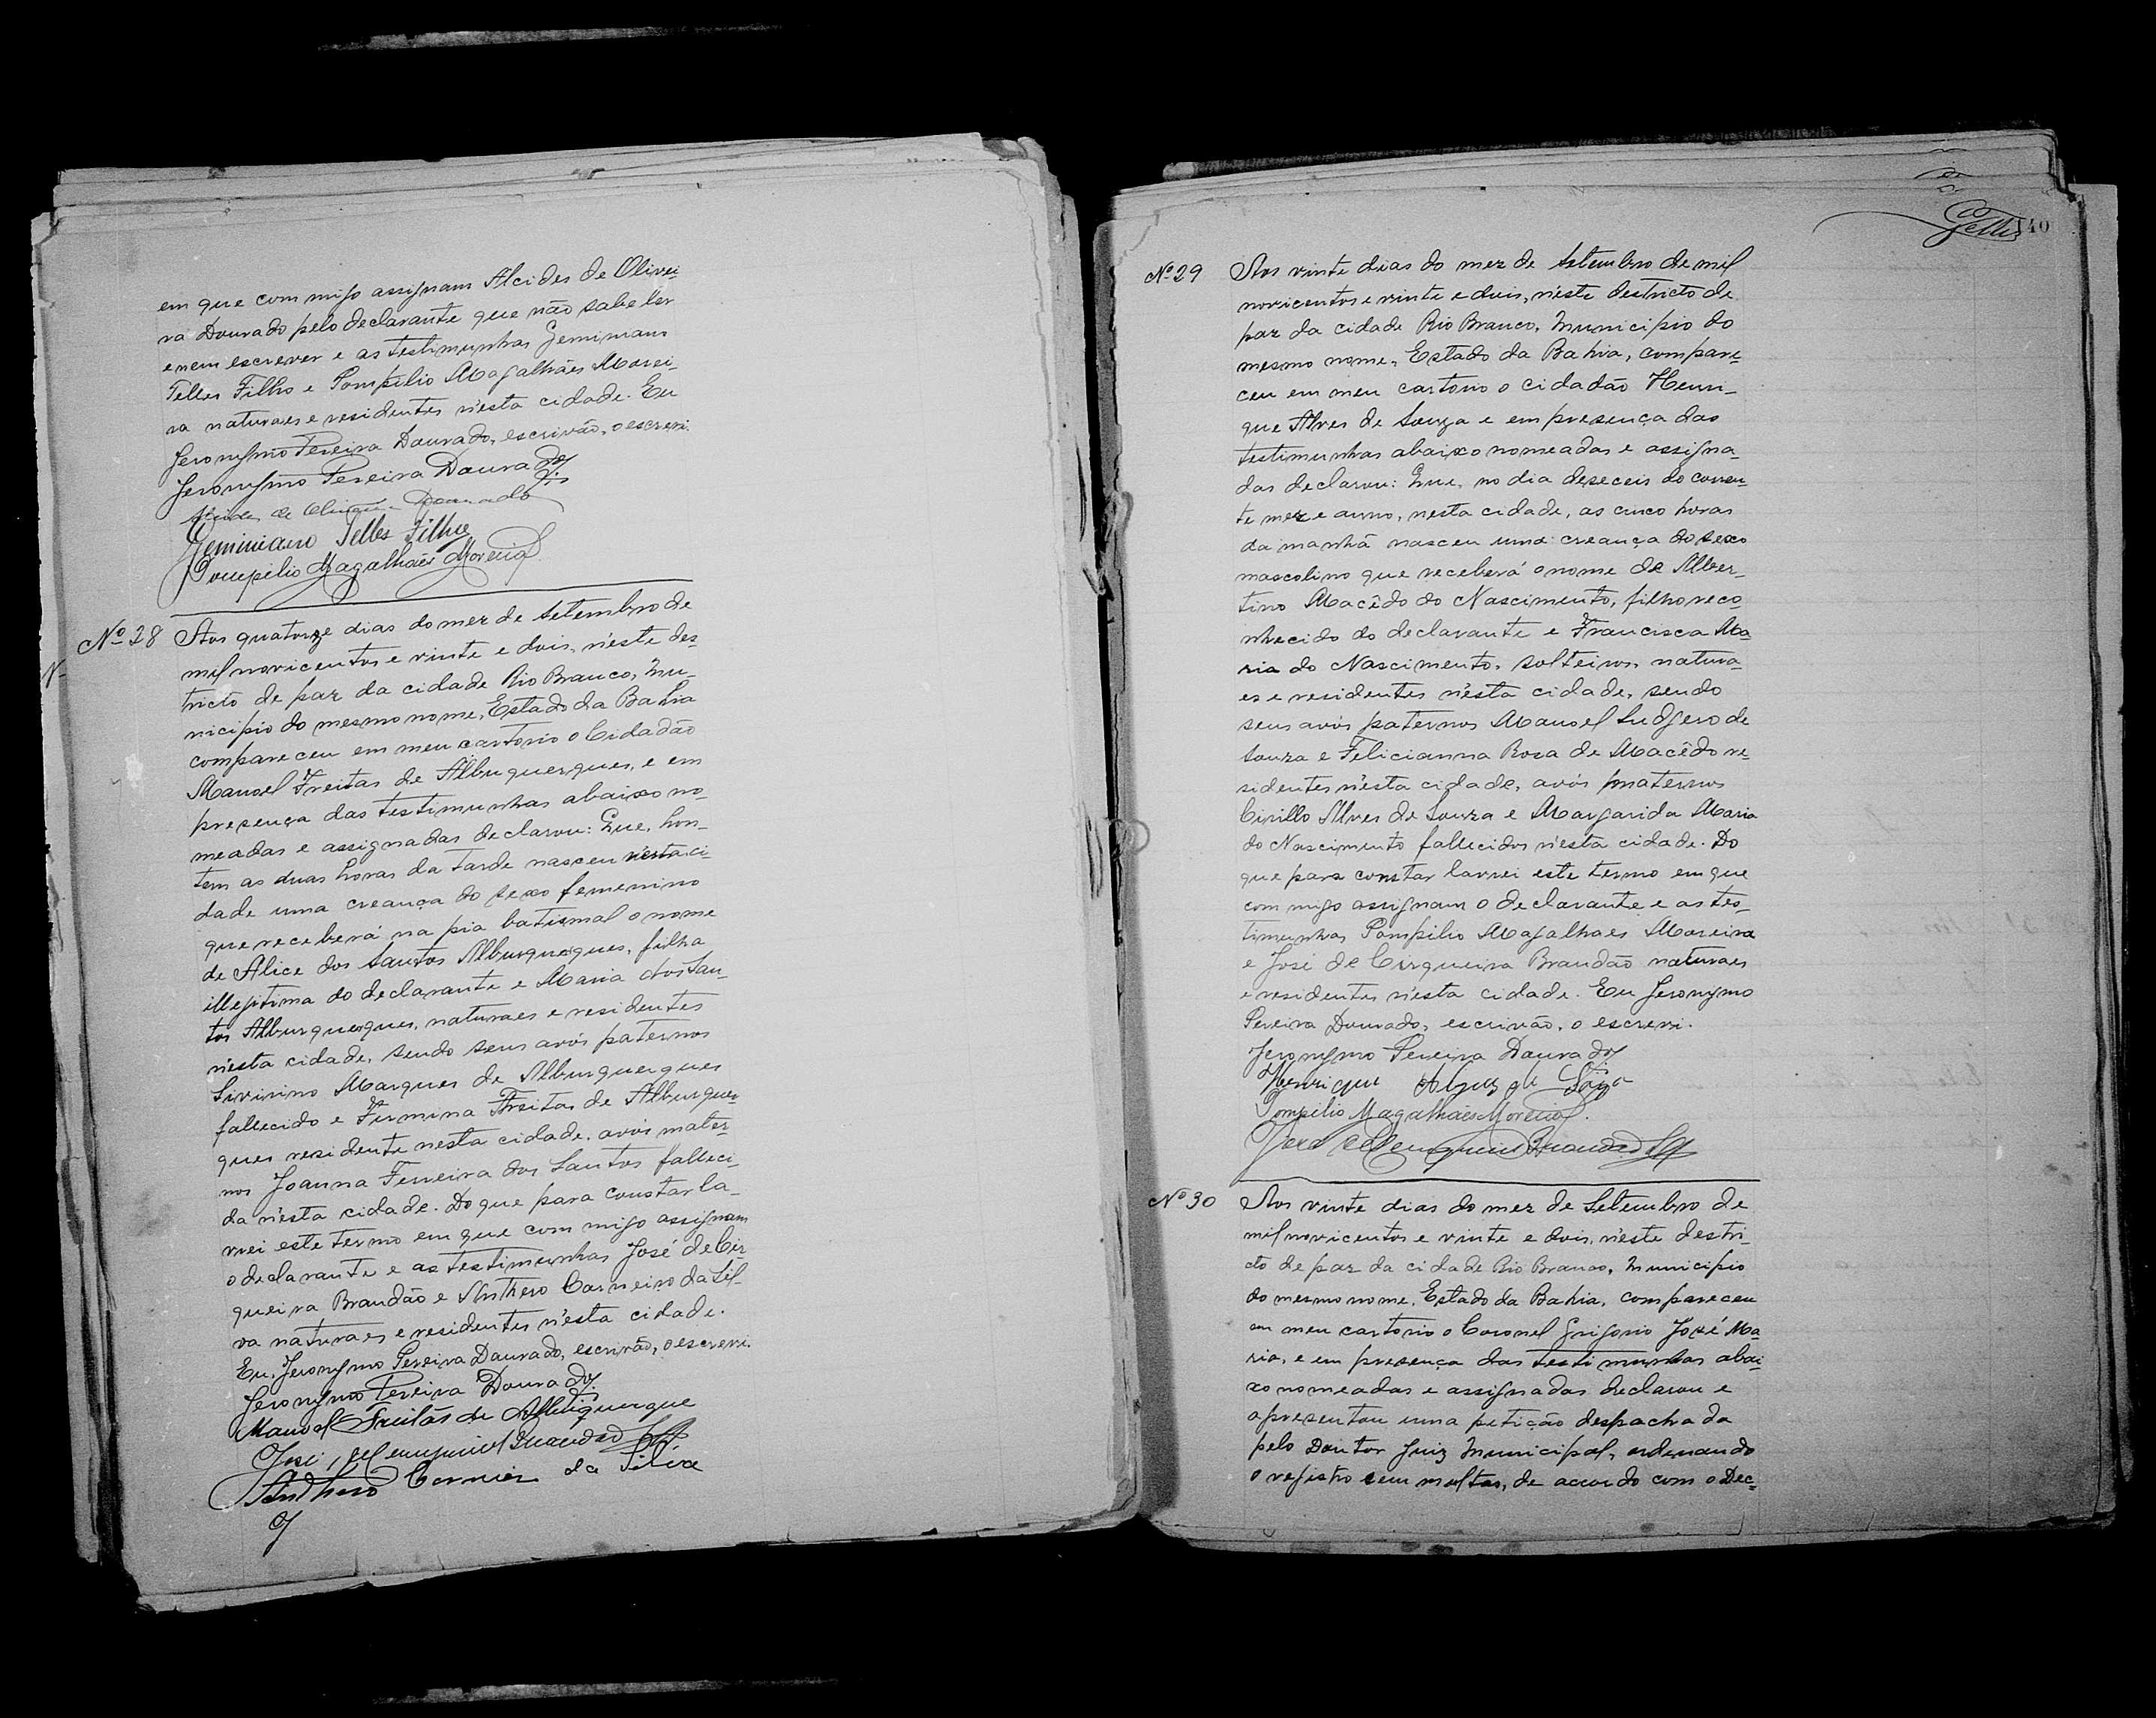 em que com migo assignam Alcides de Olivei-
ra Dourado pelo declarante que não sabe ler
e nem escrever e as testimunhas Geminiano
Telles Filho e Pompilio Magalhães Morei-
ra naturaes e residentes n'esta cidade. Eu
Jeronymo Pereira Dourado, escrivão, o escrevi.
Jeronymo Pereira Dourado
Alcides de Oliveira Dourado
Geminiano Telles Filho
Pompilio Magalhães Moreira
Nº 28 Aos quatorze dias do mez de Setembro de
mil novicentos e vinte e dois, n'este des-
tricto de paz da cidade Rio Branco, Mu-
nicipio do mesmo nome, Estado da Bahia
compareceu em meu cartorio o Cidadão
Manoel Freitas de Alburquerques, e em
presença das testimunhas abaixo no-
meadas e assignadas declarou: Que, hon-
tem as duas horas da tarde nasceu n'esta ci-
dade uma creança do sexo femenino
que receberá na pia batismal o nome
de Alice dos Santos Alburquerques, filha
illegitima do declarante e Maria dos San-
tos Alburquerques, naturaes e residentes
n'esta cidade, sendo seus avós paternos
Sivirino Marques de Alburquerques
fallecido e Firmina Freitas de Alburquer-
ques residente nesta cidade, avós mater-
nos Joanna Ferreira dos Santos falleci-
da n'esta cidade. Do que para constar la-
vrei este termo em que com migo assignam
o declarante e as testimunhas José de Cir-
queira Brandão e Anthero Carneiro da Sil-
va naturaes e residentes n'esta cidade.
Eu, Jeronymo Pereira Dourado, escrivão, o escrevi.
Jeronymo Pereira Dourado
Manoel Freitas de Albuquerque
José de Cerqueira Brandão
Anthero Carneiro da Silva
Telles 140
Nº 29 Aos vinte dias do mez de Setembro de mil
novicentos e vinte e dois, n'este destricto de
paz da cidade Rio Branco, Municipio do
mesmo nome, Estado da Bahia, compare-
ceu em meu cartorio o cidadão Henri-
que Alves de Souza e em presença das
testimunhas abaixo nomeadas e assigna-
das declarou: Que, no dia deseceis do corren-
te mez e anno, nesta cidade, as cinco horas
da manhã nasceu uma creança do sexo
mascolino que receberá o nome de Alber-
tino Macêdo do Nascimento, filho reco-
nhecido do declarante e Francisca Ma-
ria do Nascimento, solteiros, natura-
es e residentes n'esta cidade, sendo
seus avós paternos Manoel Ludgero de
Souza e Felicianna Rosa de Macêdo re-
sidentes n'esta cidade, avós maternos
Cirillo Alves de Souza e Margarida Maria
do Nascimento fallecidos n'esta cidade. Do
que para constar lavrei este termo em que
com migo assignam o declarante e as tes-
timunhas Pompilio Magalhaes Moreira
e José de Cirqueira Brandão naturaes
e residentes n'esta cidade. Eu Jeronymo
Pereira Dourado, escrivão, o escrevi.
Jeronymo Pereira Dourado
Henrique Alves de Souza
Pompilio Magalhães Moreira
José de Cerqueira Brandão
Nº 30 Aos vinte dias do mez de Setembro de
mil novicentos e vinte e dois, n'este destri-
cto de paz da cidade Rio Branco, Municipio
do mesmo nome, Estado da Bahia, compareceu
em meu cartorio o Coronel Grigorio José Ma-
ria, e em presença das testimunhas abai-
xo nomeadas e assignadas declarou e
apresentou uma petição despachada
pelo Doutor Juiz Municipal, ordenando
o registro sem multas, de accordo com o Dec-